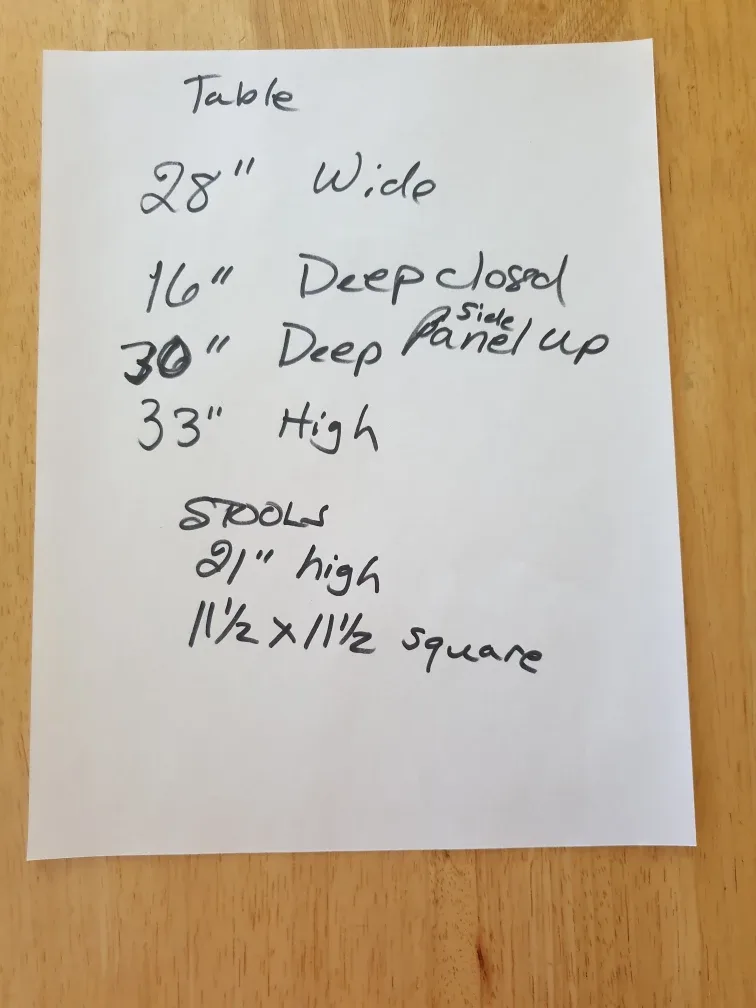 Table
28" Wide
16" Deep closed
30" Deep side Panel up
33" High
STOOLS
21" high
11½ x 11½ square